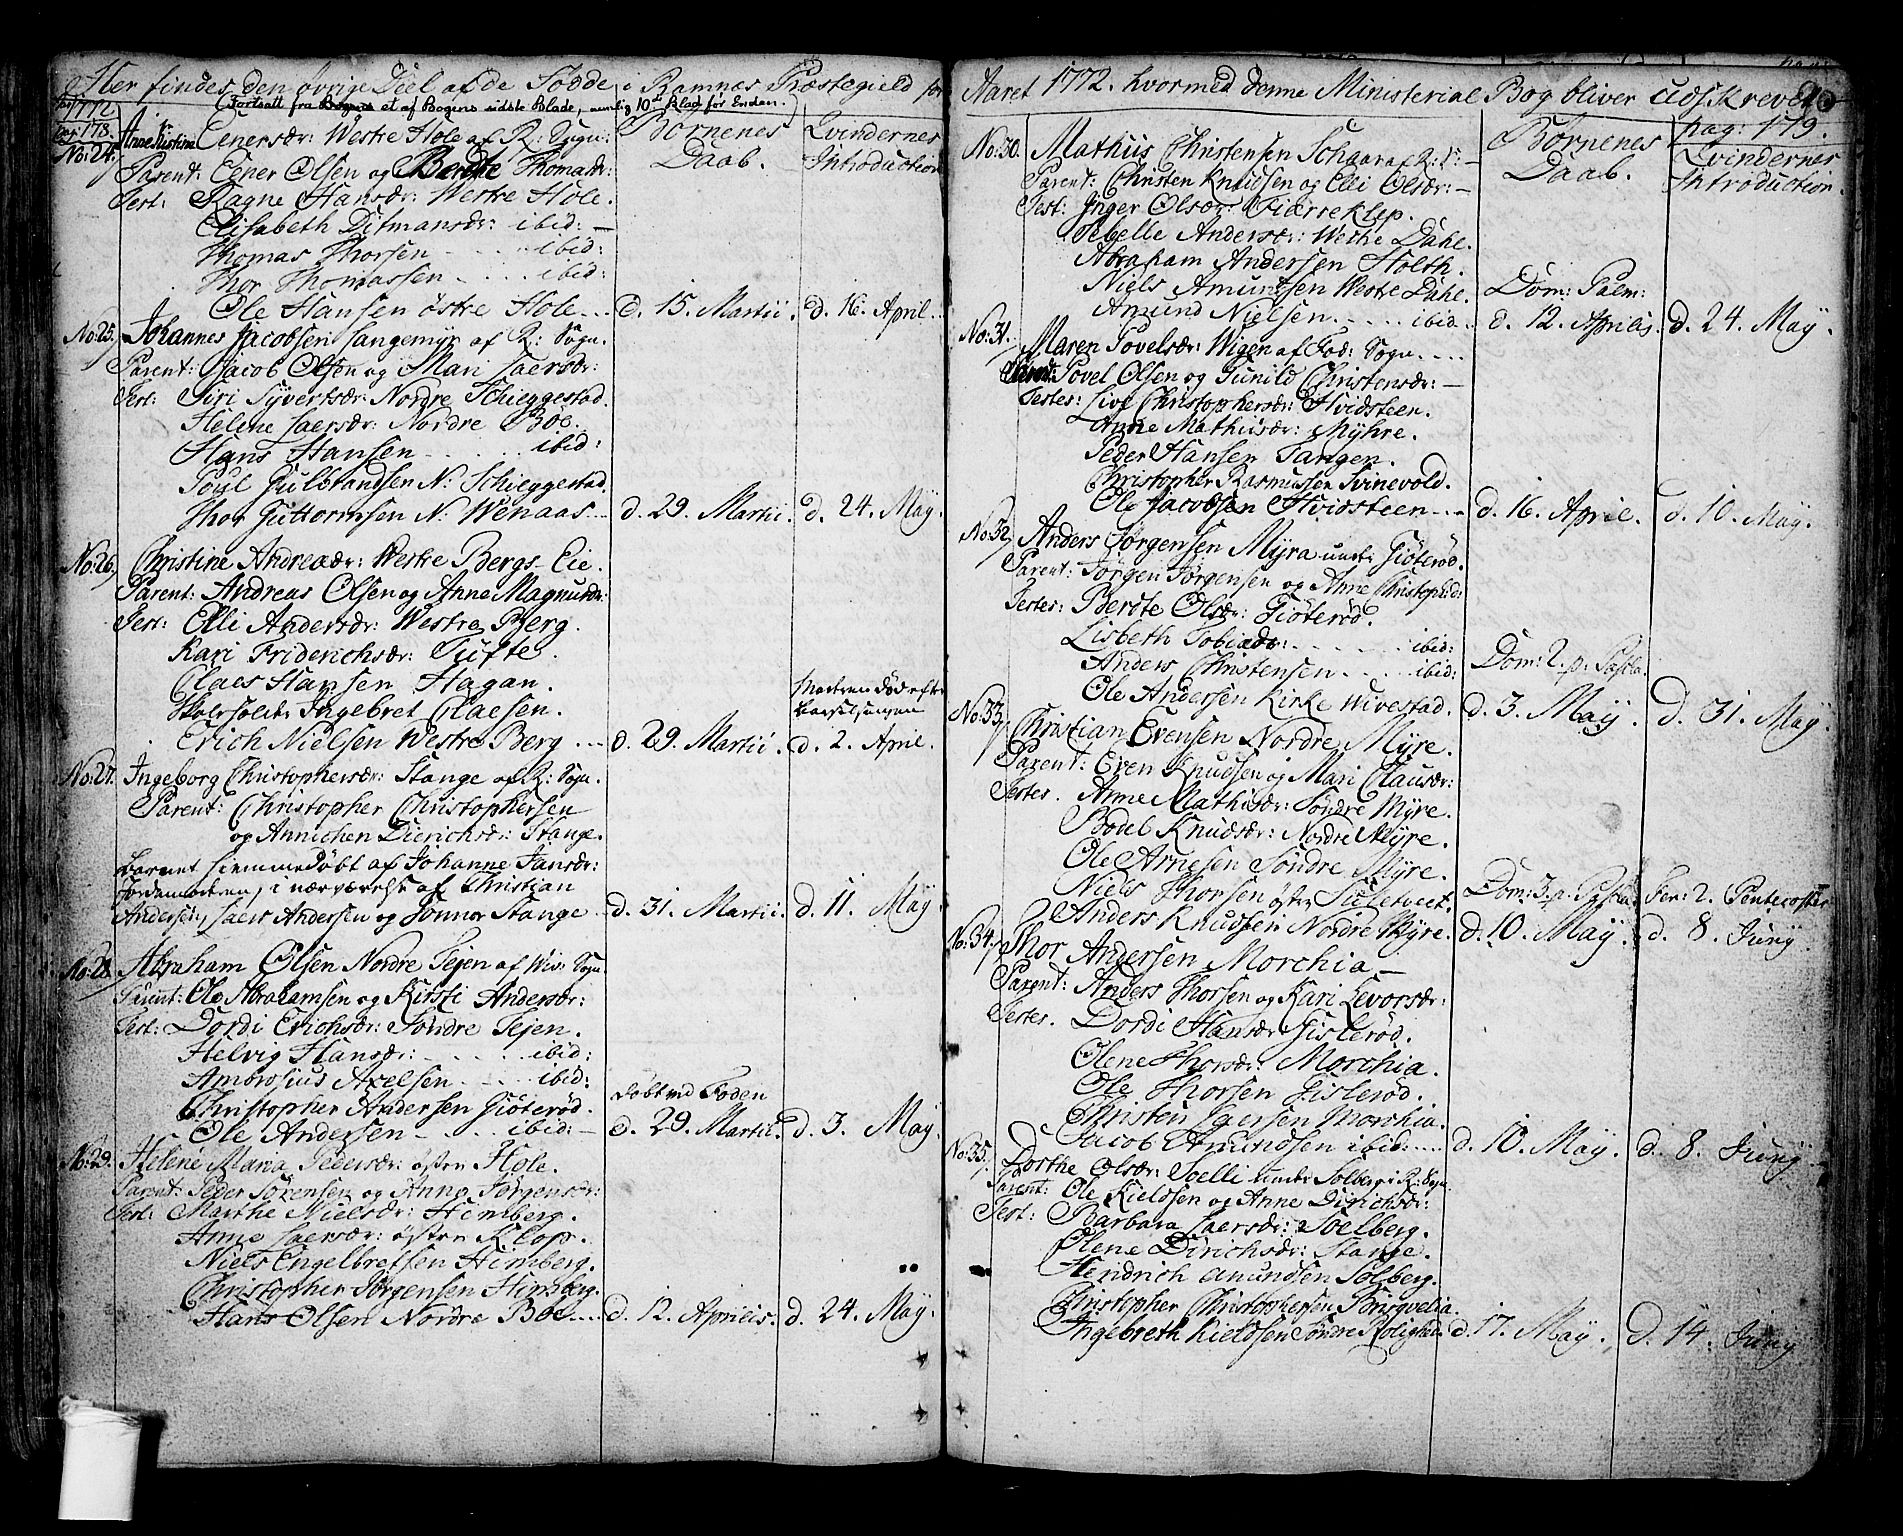 Her findes den øvrige Deel af de Fødde i Ramnæs Præstegield for
(Fortsatt fra et af Bogens sidste Blade, nemlig 10de Blad før Enden.)
1772.
pag: 178.
Børnenes Daab.
Qvindernes Introduction
No: 24. Anne Kirstine Eenersær: Westre Hole af R: Sogn.
Parent: Eener Olsen og Berthe Thomædr:
Test: Ragne Hansær: Westre Hole.
Elisabeth Ditmansær: ibid: —
Thomas Thorsen - - - ibid:
Thor Thomassen - - - ibid:
Ole Hansen østre Hole... d. 15. Martii. d. 16. April.
No: 25. Johannes Jacobsen Langemyr af R: Sogn.
Parent: Jacob Olsen og Mari Laersdr:
Test: Siri Syvertsær: Nordre Schieggestad.
Helene Laersær: Nordre Bøe.
Hans Hansen - - - ibid:
Poul Gulbrandsen N: Schieggestad.
Thor Guttormsen N: Wenaas... d. 29. Martii. d. 24. May.
No: 26. Christine Andreædr: Westre Bergs-Eie.
Parent: Andreas Olsen og Anne Magnusdr:
Test: Elli Andersær: Westre Berg.
Kari Friderichsær: Tufte.
Claes Hansen Hagan.
Ingebret Claesen.
Moderen død efter
Barselsengen
Erich Nielsen Westre Berg... d. 29. Martii. d. 2. April.
No: 27. Ingeborg Christophersær: Stange af R: Sogn.
Parent: Christopher Christophersen
og Annichen Dierichsær: Stange.
Barnet hiemmedøbt af Johanne Jansær:
Jordemoderen, i nærværelse af Christian
Andersen, Laers Andersen og Gonnor Stange... d. 31. Martii. d. 11. May.
No: 28. Abraham Olsen Nordre Fejen af Wiv: Sogn.
Parent: Ole Abrahamsen og Kirsti Andersær:
Test: Dordi Erichsær: Søndre Fejen.
Helvig Hansær: - - - ibid:
Ambrosius Axelsen - - - ibid:
Christopher Andersen Giøterød.
Døbt ved Foden
Ole Andersen - - - ibid: — d. 29. Martii. d. 3. May.
No: 29. Helene Maria Pedersær: østre Hole.
Parent: Peder Sørensen og Anne Jørgensær:
Test: Marthe Nielsær: Himberg.
Anne Laersær: østre Klop.
Niels Engelbretsen Himberg.
Christopher Jørgensen Himberg.
Hans Olsen Nordre Bøe.... d. 12. Aprilis. d. 24. May.
Aaret 1772. hvormed denne Ministerial Bog bliver udskreven
pag: 179.
Børnenes Daab.
Qvindernes Introduction.
No: 30. Mathiis Christensen Schaara af R: S: —
Parent: Christen Knudsen og Elli Olsær: —
Test: Inger Olsær: Fiærreklep.
Pebelle Andersær: Westre Dahl.
Abraham Andersen Holth.
Niels Amundsen Westre Dahl. Dom: Palm:
Amund Nielsen - - - ibid: d. 12. Aprilis. d. 24. May.
No: 31. Maren Povelsær: Wigen af Fod: Sogn....
Povel Olsen og Gunild Christensær: —
Testes: Live Christophersær: Hvidsteen.
Anne Mathiisær: Myhre.
Peder Hansen Tangen.
Christopher Rasmussen Svinevold.
Ole Jacobsen Hvidsteen... d. 16. April. d. 10. May.
No: 32. Anders Jørgensen Myra under Giøterød.
Parent: Jørgen Jørgensen og Anne Christophsdr:
Testes: Berthe Olsær: Giøterød.
Lisbeth Tobiædr: - - - ibid:
Anders Christensen - - - ibid: Dom: 2. p: Pascha
Ole Andersen Kirke Wivestad. d. 3. May. d. 31. May.
No: 33. Christian Evensen Nordre Myre.
Parent: Even Knudsen og Mari Clausær:
Testes. Anne Mathisær: Søndre Myre.
Bodel Knudsær: Nordre Myre.
Ole Arnesen Søndre Myre.
Niels Thorsen østre Sletvet. Dom: 3. p. Pascha Fer: 2. Pentecostes
Anders Knudsen Nordre Myre. d. 10. May. d. 8. Juny.
No: 34. Thor Andersen Morchia —
Parent: Anders Thorsen og Kari Levorsær:
Testes. Dordi Hansær: Gislerød.
Olene Thorsær: Morchia.
Ole Thorsen Gislerød.
Christen Laersen Morchia.
Jacob Amundsen ibid: ... d. 10. May. d. 8. Juny
No: 35. Dorthe Olsær: Soelli under Solberg i R: Sogn.
Parent: Ole Kieldsen og Anne Dirichsær:
Test: Barbara Laersær: Soelberg.
Olene Dirichsær: Stange.
Hendrich Amundsen Solberg.
Christopher Christophersen
Ingebreth Kieldsen Søndre Rolighed. d. 17. May. d. 14. Juny